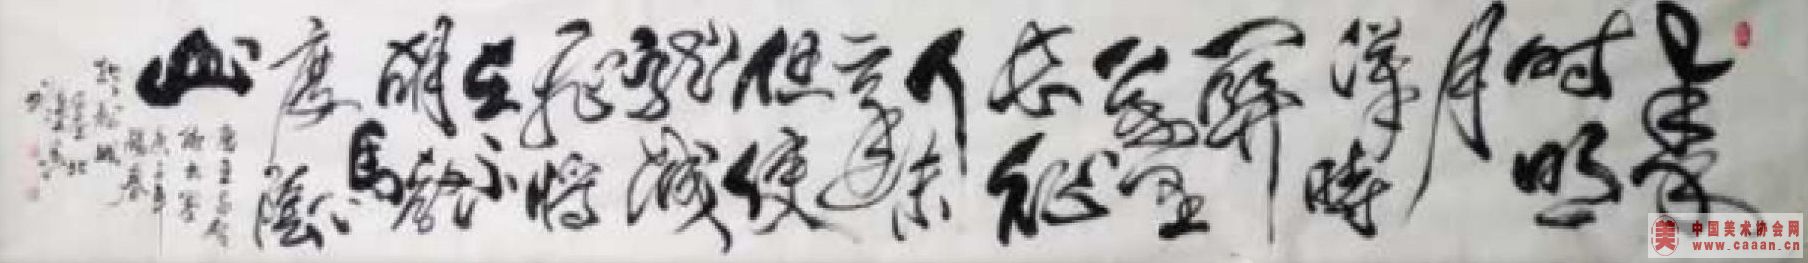 秦
时明
月
漢時
関
萬里
长征
人未
還
但使
龍城
飛將
在不教
胡馬
度陰
山
唐王昌龄
诗出塞
庚子年
中国美术协会网
www.caaan.cn